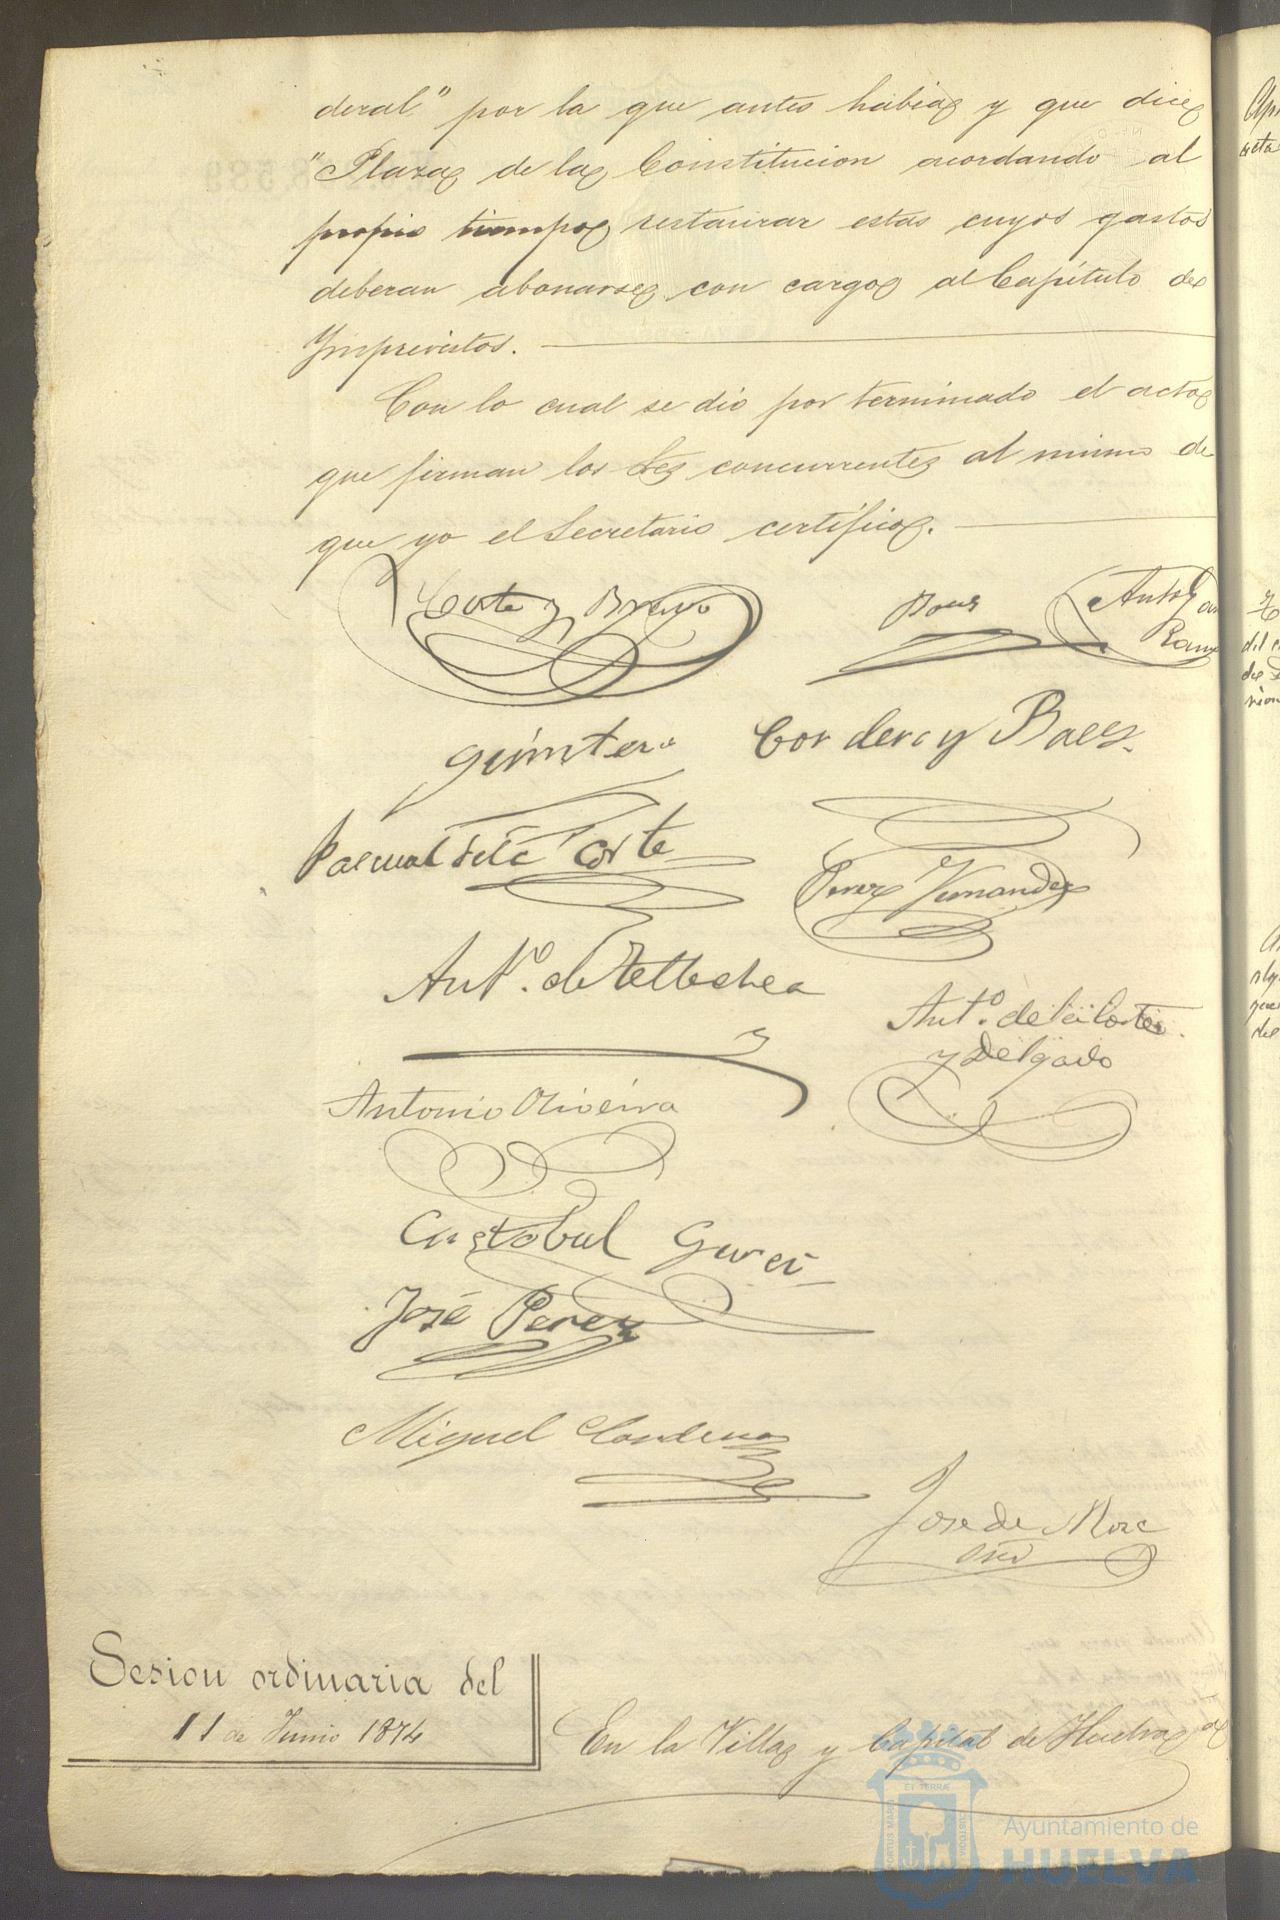 deral" por la que antes habia y que dice
"Plaza de la Constitucion acordando al
propio tiempo restaurar estas cuyos gastos
deberan abonarse con cargo al Capítulo de
Imprevistos.
Con lo cual se dió por terminado el acto
que firman los Sres concurrentes al mismo de
que yo el Secretario certifico.
Corte y Bravo
Antº
Quintero Cordero y Baez
Pascual de la Corte
Perez Fernandez
Antº. de Tellechea
Antº. de la Corte
y Delgado
Antonio Oliveira
Cristobal Garci
José Perez
Miguel Cardenas
Jose de Mora
Srio
Sesion ordinaria del
11 de Junio 1874
En la Villa y Capital de Huelva a
PORTUS MARIS
ET TERRÆ
CUSTODIA
Ayuntamiento de
HUELVA